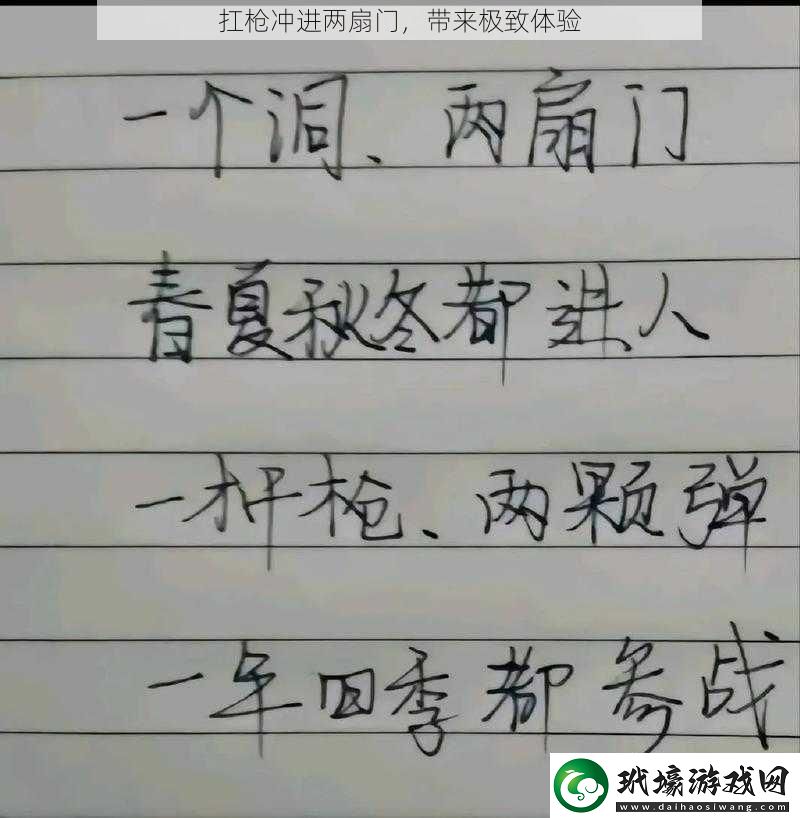 扛枪冲进两扇门，带来极致体验
一个洞、两扇门
春夏秋冬都进人
一杆枪、两颗弹
一年四季都参战
玳壕游戏网
www.daihaosiwang.com